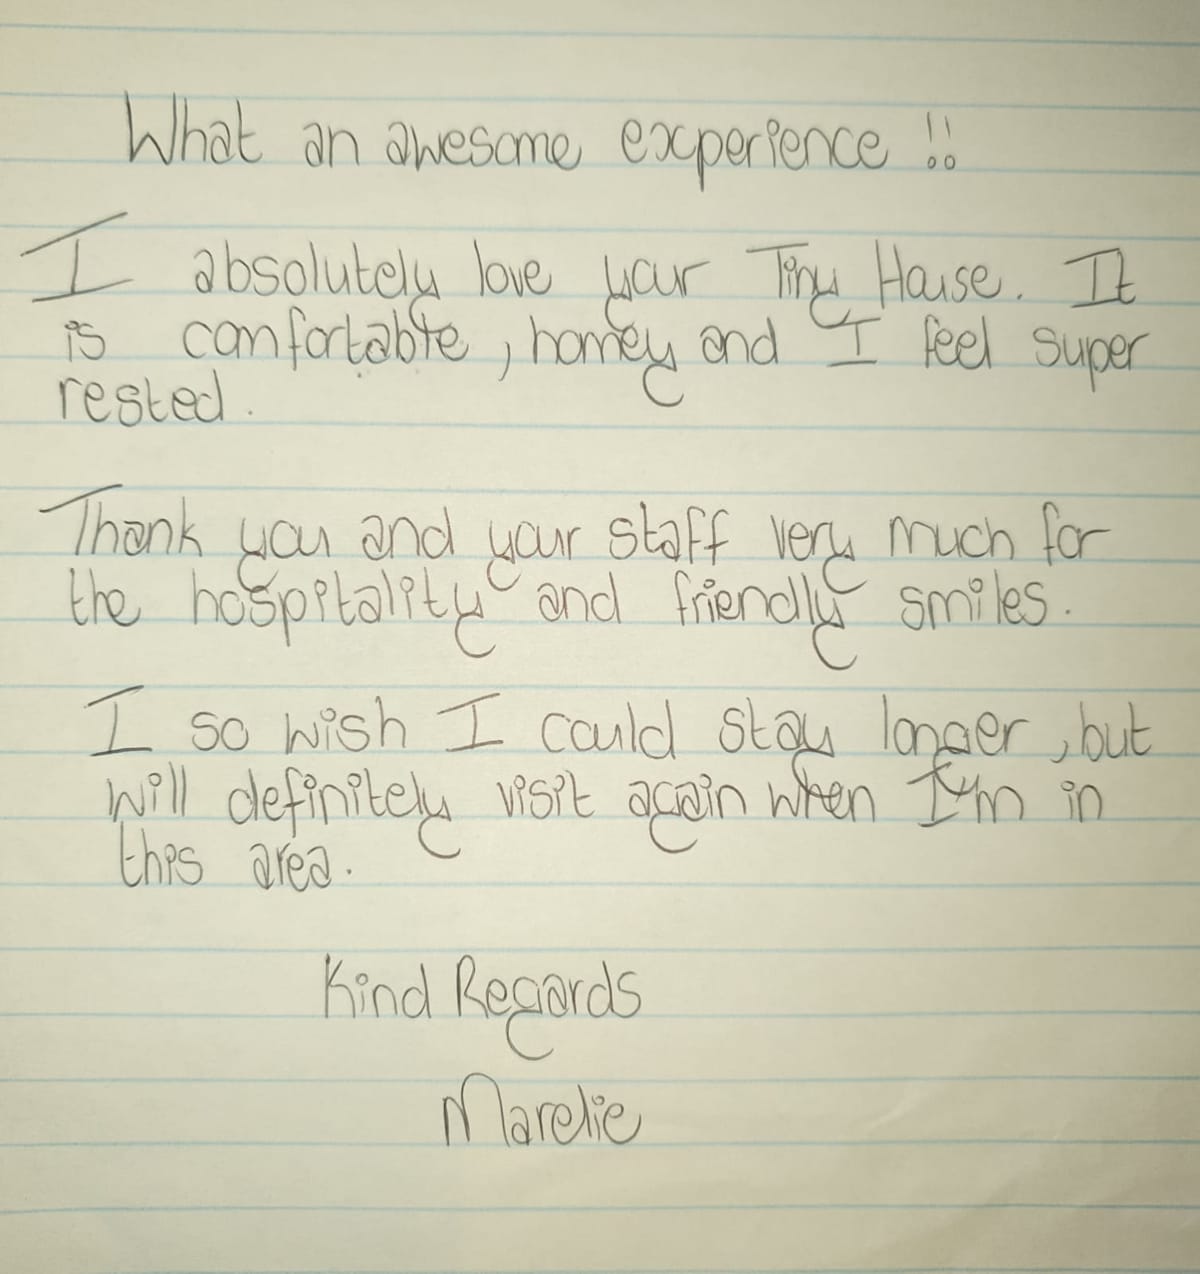 What an awesome experience !!
I absolutely love your Tiny House. It
is comfortable, homey and I feel super
rested.
Thank you and your staff very much for
the hospitality and friendly smiles.
I so wish I could stay longer, but
will definitely visit again when I'm in
this area.
Kind Regards
Marelie